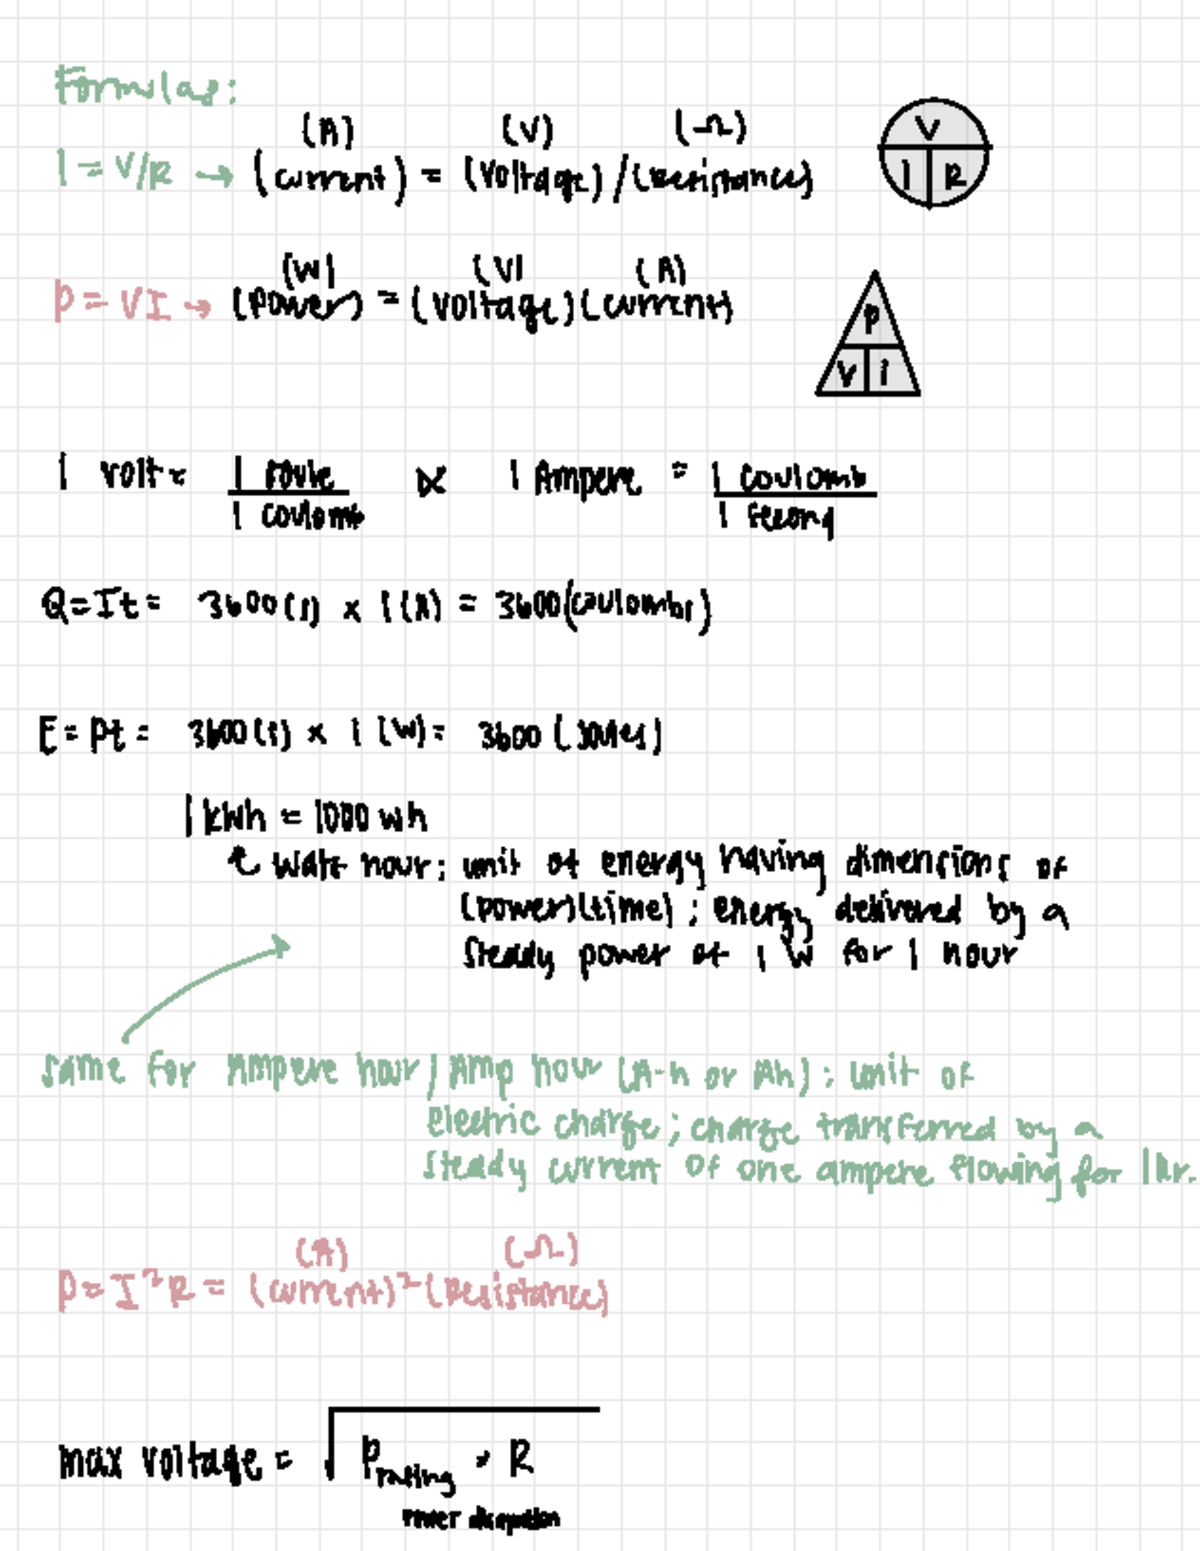 Formulas:
(A) (V) (Ω)
I = V/R → (current) = (voltage)/(resistance)
V
I R
(W) (V) (A)
P = VI → (power) = (voltage)(current)
P
V i
1 volt = 1 joule / 1 coulomb & 1 Ampere = 1 coulomb / 1 second
Q = It = 3600(s) x 1(A) = 3600(coulombs)
E = Pt = 3600(s) x 1(W) = 3600(joules)
1 kWh = 1000 wh
watt hour: unit of energy having dimensions of
(power)(time); energy delivered by a
steady power of 1 W for 1 hour
same for Ampere hour/Amp hour (A-h or Ah): unit of
electric charge; charge transferred by a
steady current of one ampere flowing for 1 hr.
(A) (Ω)
P = I²R = (current)²(resistance)
max voltage = √P rating · R
power dissipation